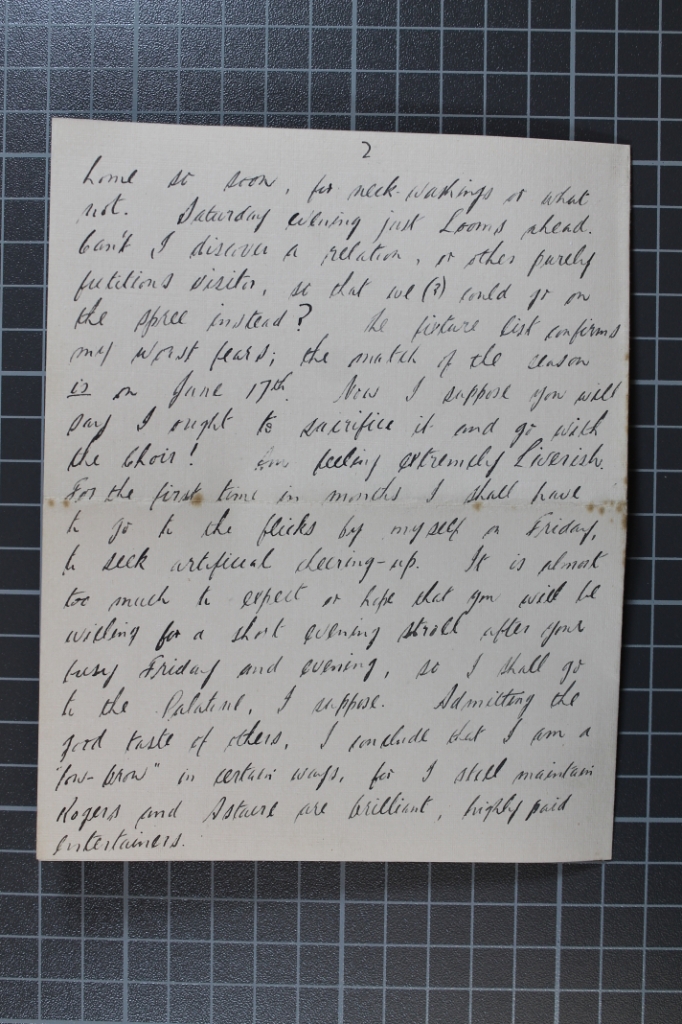 2
home so soon, for neck-washings or what
not. Saturday evening just Looms ahead.
Can't I discover a relation, or other purely
fictitious visitor, so that we (?) could go on
the spree instead? The fixture list confirms
my worst fears; the match of the season
is on June 17th. Now I suppose you will
say I ought to sacrifice it and go with
the Choir! Am feeling extremely Liverish.
For the first time in months I shall have
to go to the flicks by myself on Friday,
to seek artificial cheering-up. It is almost
too much to expect or hope that you will be
willing for a short evening stroll after your
busy Friday and evening, so I shall go
to the Palatine, I suppose. Admitting the
good taste of others, I conclude that I am a
"low-brow" in certain ways, for I still maintain
Rogers and Astaire are brilliant, highly paid
entertainers.